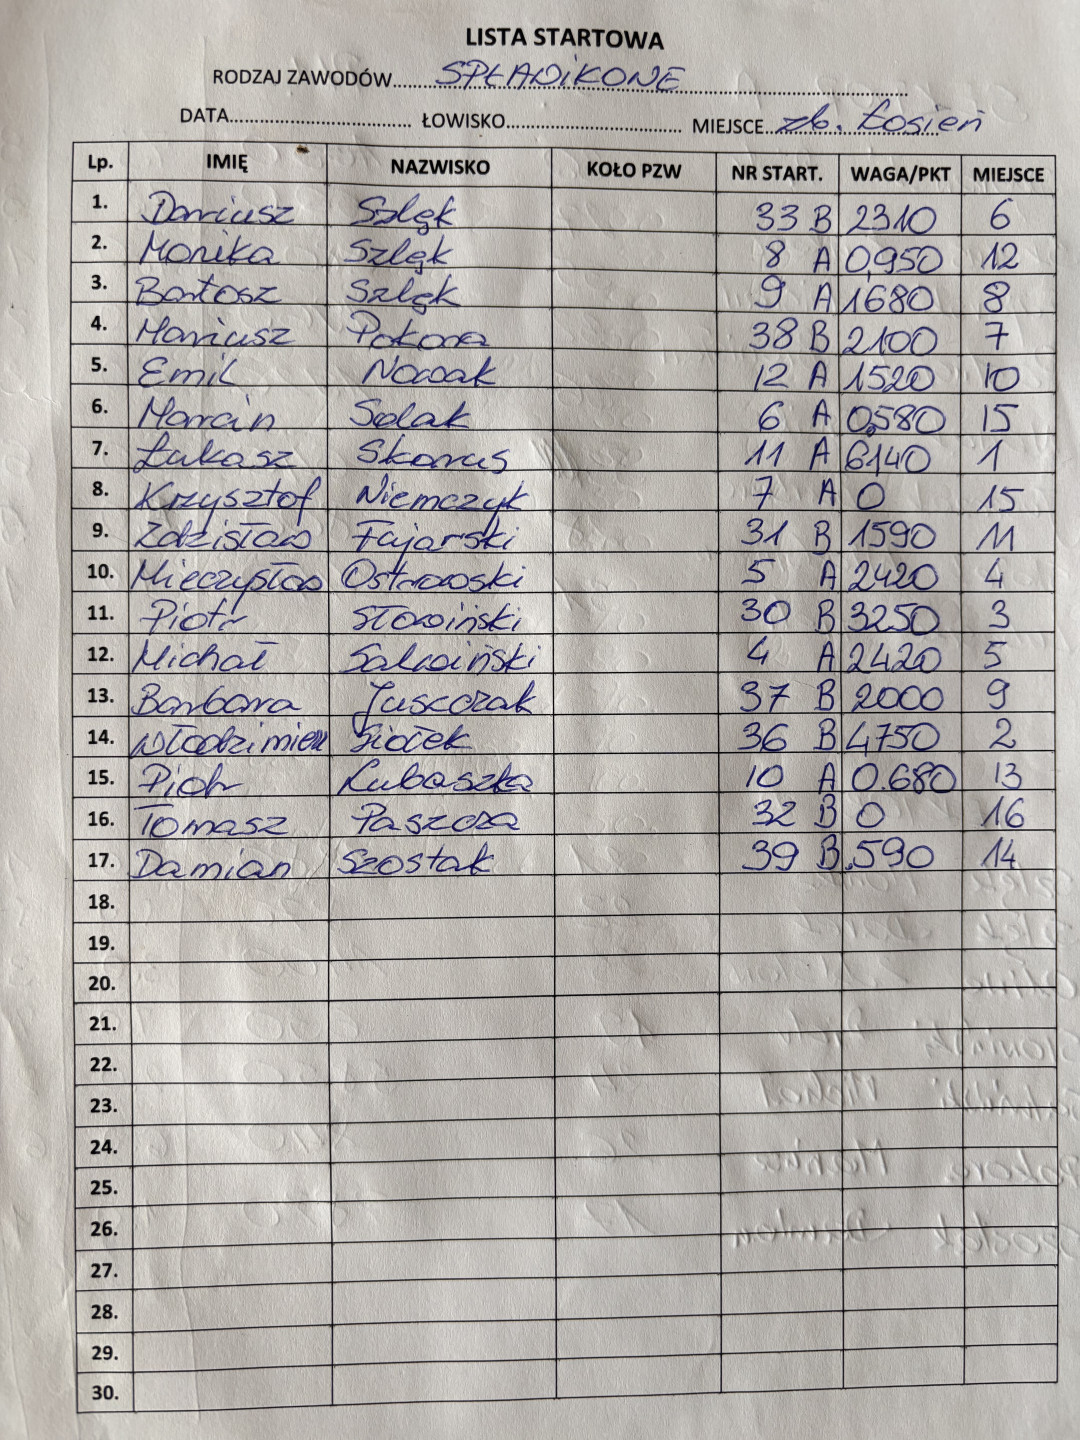 LISTA STARTOWA
RODZAJ ZAWODÓW.....SPŁAWIKOWE
DATA.............................. ŁOWISKO.............................. MIEJSCE...zb. Łosień
Lp. IMIĘ NAZWISKO KOŁO PZW NR START. WAGA/PKT MIEJSCE
1. Dariusz Szlęk 33 B 2310 6
2. Monika Szlęk 8 A 0,950 12
3. Bartosz Szlęk 9 A 1680 8
4. Mariusz Pokora 38 B 2100 7
5. Emil Nowak 12 A 1520 10
6. Marcin Solak 6 A 0,580 15
7. Łukasz Skorus 11 A 6140 1
8. Krzysztof Niemczyk 7 A 0 15
9. Zdzisław Fajarski 31 B 1590 11
10. Mieczysław Ostrowski 5 A 2420 4
11. Piotr Słowiński 30 B 3250 3
12. Michał Salwiński 4 A 2420 5
13. Barbara Juszczak 37 B 2000 9
14. Włodzimierz Siołek 36 B 4750 2
15. Piotr Lubaszka 10 A 0.680 13
16. Tomasz Paszcza 32 B 0 16
17. Damian Szostak 39 B .590 14
18.
19.
20.
21.
22.
23.
24.
25.
26.
27.
28.
29.
30.